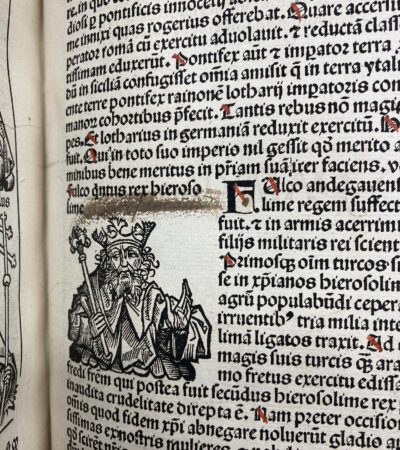 diosi ꝑ pontificis innocētij
me innixi quas rogerius offerebat. Quare accersi
perator romā cū exercitu aduolauit. ⁊ reductā class
tissimam eduxerut. Pontifex aūt ⁊ imꝑator terra
in siciliā confugisset oīa amisit q̄ in terra ytali
ente terre pontifex rainonē lotharij imꝑatoris
manoꝝ cohortibus p̄fecit. Tantis rebus non magi
Et lotharius in germaniā reduxit exercitū.
fuit. Qui in toto suo imperio nil gessit qđ merito a
minibus bene meritus in p̄riam suā iter faciens. v
fulco q̄ntus rex hieroso
lime
Fulco andegauens
lime regem suffect
fuit. ⁊ in armis acerrim
filijs militaris rei scient
Primosq̄ oīm turcos si
se in xp̄ianos hierosolim
agrū populabūdi ceper
irruentibꝰ tria milia inte
limā ligatos traxit. Ad
magis suis turcis q̄ ara
mo fretus exercitu edissa
fredi frēm qui postea fuit secūdus hierosolime rex
inaudita crudelitate direpta ē. Nam preter occisio
omīs quod fidem xp̄i abnegare noluerūt gladio
simas ex nostris mulieres